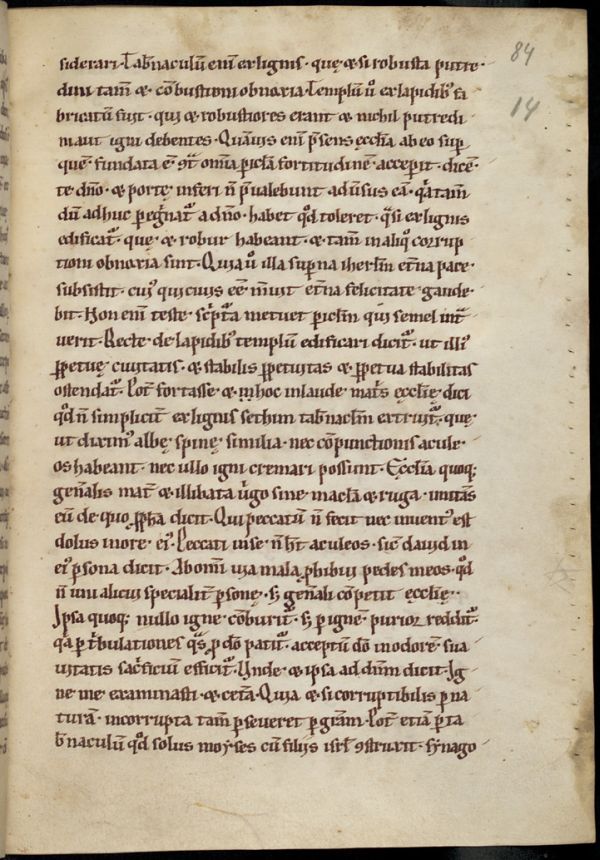 84
14
siderari. Tab̄naculū enī ex lignis. quę & si robusta putre-
dini tam̄ & cōbustioni obnoxia. Templū ū ex lapidib; fa
bricatū fuit. qui & robustiores erant & nichil putredi
ni aut igni debentes. Quāuis enī p̄sens ęccl̄ia ab eo sup
quē fundata ē ꝯt̄ om̄a pic̄la fortitudinē acceperit. dicē-
te dn̄o. & portę inferi n̄ p̄ualebunt aduersus eā. q̄a tam̄
dū adhuc pegnat̄ a dn̄o. habet qd̄ toleret. q̄si ex lignis
edificat̄. quę & robur habeant. & tam̄ in aliq̊ corrup
tioni obnoxia sint. Quia ū illa supna ihrl̄m et̄na pace
subsistit. cui᾽ qui ciuis eē meruit et̄na felicitate gaude-
bit. Non enī teste sc̄ptura metuet piclm̄ qui semel int̄
uerit. Recte de lapidib; templū edificari dicit̄. ut illi᾽
ppetuę ciuitatis. & stabilis ppetuitas & ppetua stabilitas
ostendat̄. Pot̄ fortasse & in hoc in laude mat̄s ęccl̄ię dici
qd̄ n̄ simpliciū ex lignis sethim tab̄naclm̄ extruit̄. quę
ut dixim᾽ albę spinę similia. nec cōpunctionis acule-
os habeant. nec ullo igni cremari possunt. Ęccl̄ia quoq;
gen̄alis mat̄ & illibata uirgo sine macl̄a & ruga. imitās
eū de quo ꝓph̄a dicit. Qui peccatū n̄ fecit nec inuent᾽ est
dolus in ore ei᾽. Peccati in se n̄ ht̄ aculeos. sic̄ dauid in
ei᾽ psona dicit. Ab omī uia mala ꝓhibui pedes meos. qd̄
n̄ uni alicui specialit̄ psonę. s; gen̄ali cōpetit ęccl̄ię.
Ipsa quoq; nullo igne cōburit̄. s; p ignē purior reddit̄.
q̄a t̄bulationes q̄s ꝓ dō patit̄. acceptū dō in odorē sua
uitatis sac̄ficiū efficit̄. Unde & ipsa ad dn̄m dicit. Ig
ne me examinasti. & cet̄a. Quia & si corruptibilis p na
turā. incorrupta tam̄ pseueret p gr̄am. Pot̄ etiā p ta
b̄naculū qd̄ solus moẏses cū filiis isrl̄ ꝯstruxit. sẏnago